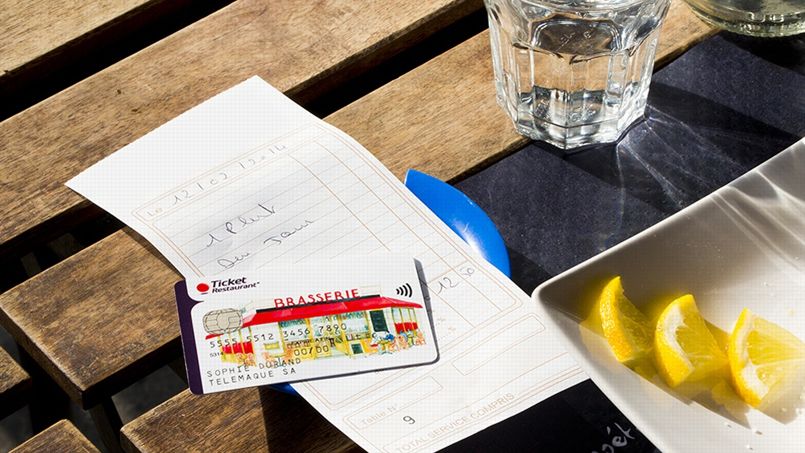 Le 12/02/2014
1 Plat
Du Jour
12 50
Ticket
Restaurant
BRASSERIE
5555 5512 3456 7890
00/00
SOPHIE DURAND
TELEMAQUE SA
Table N° 9
TOTAL SERVICE COMPRIS